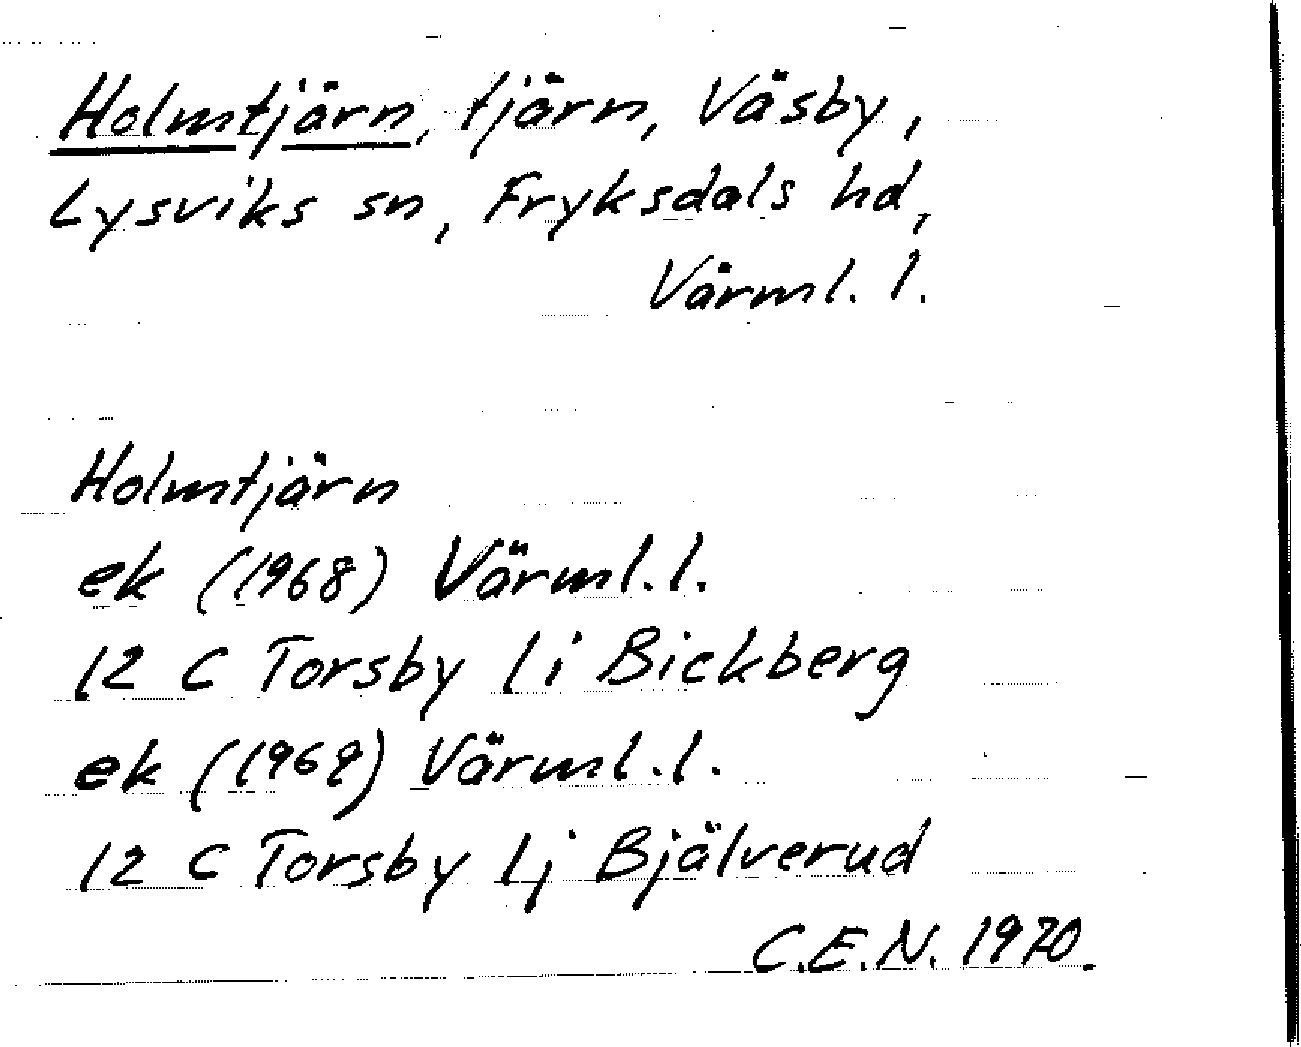 Holmtjärn, tjärn, Väsby,
Lysviks sn, Fryksdals hd,
Värml. l.
Holmtjärn
ek (1968) Värml. l.
12 C Torsby 1i Bickberg
ek (1969) Värml. l.
12 C Torsby 1j Bjälverud
C.E.N. 1970.